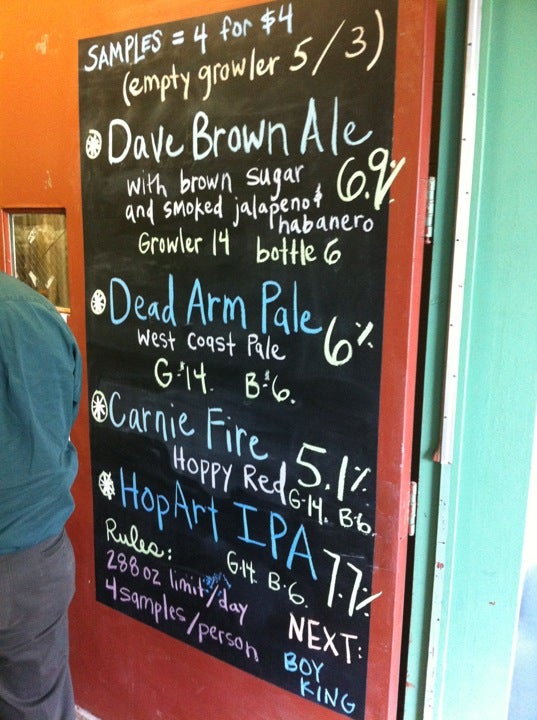 SAMPLES = 4 for $4
(empty growler 5/3)
Dave Brown Ale
with brown sugar 6.9%
and smoked jalapeno &
habanero
Growler 14 bottle 6
Dead Arm Pale
West Coast Pale 6%
G-$14. B-$6.
Carnie Fire
Hoppy Red 5.1%
G-14. B-6.
HopArt IPA
G-14. B-6. 7.7%
Rules:
288 oz limit/day
4 samples/person
NEXT:
BOY
KING